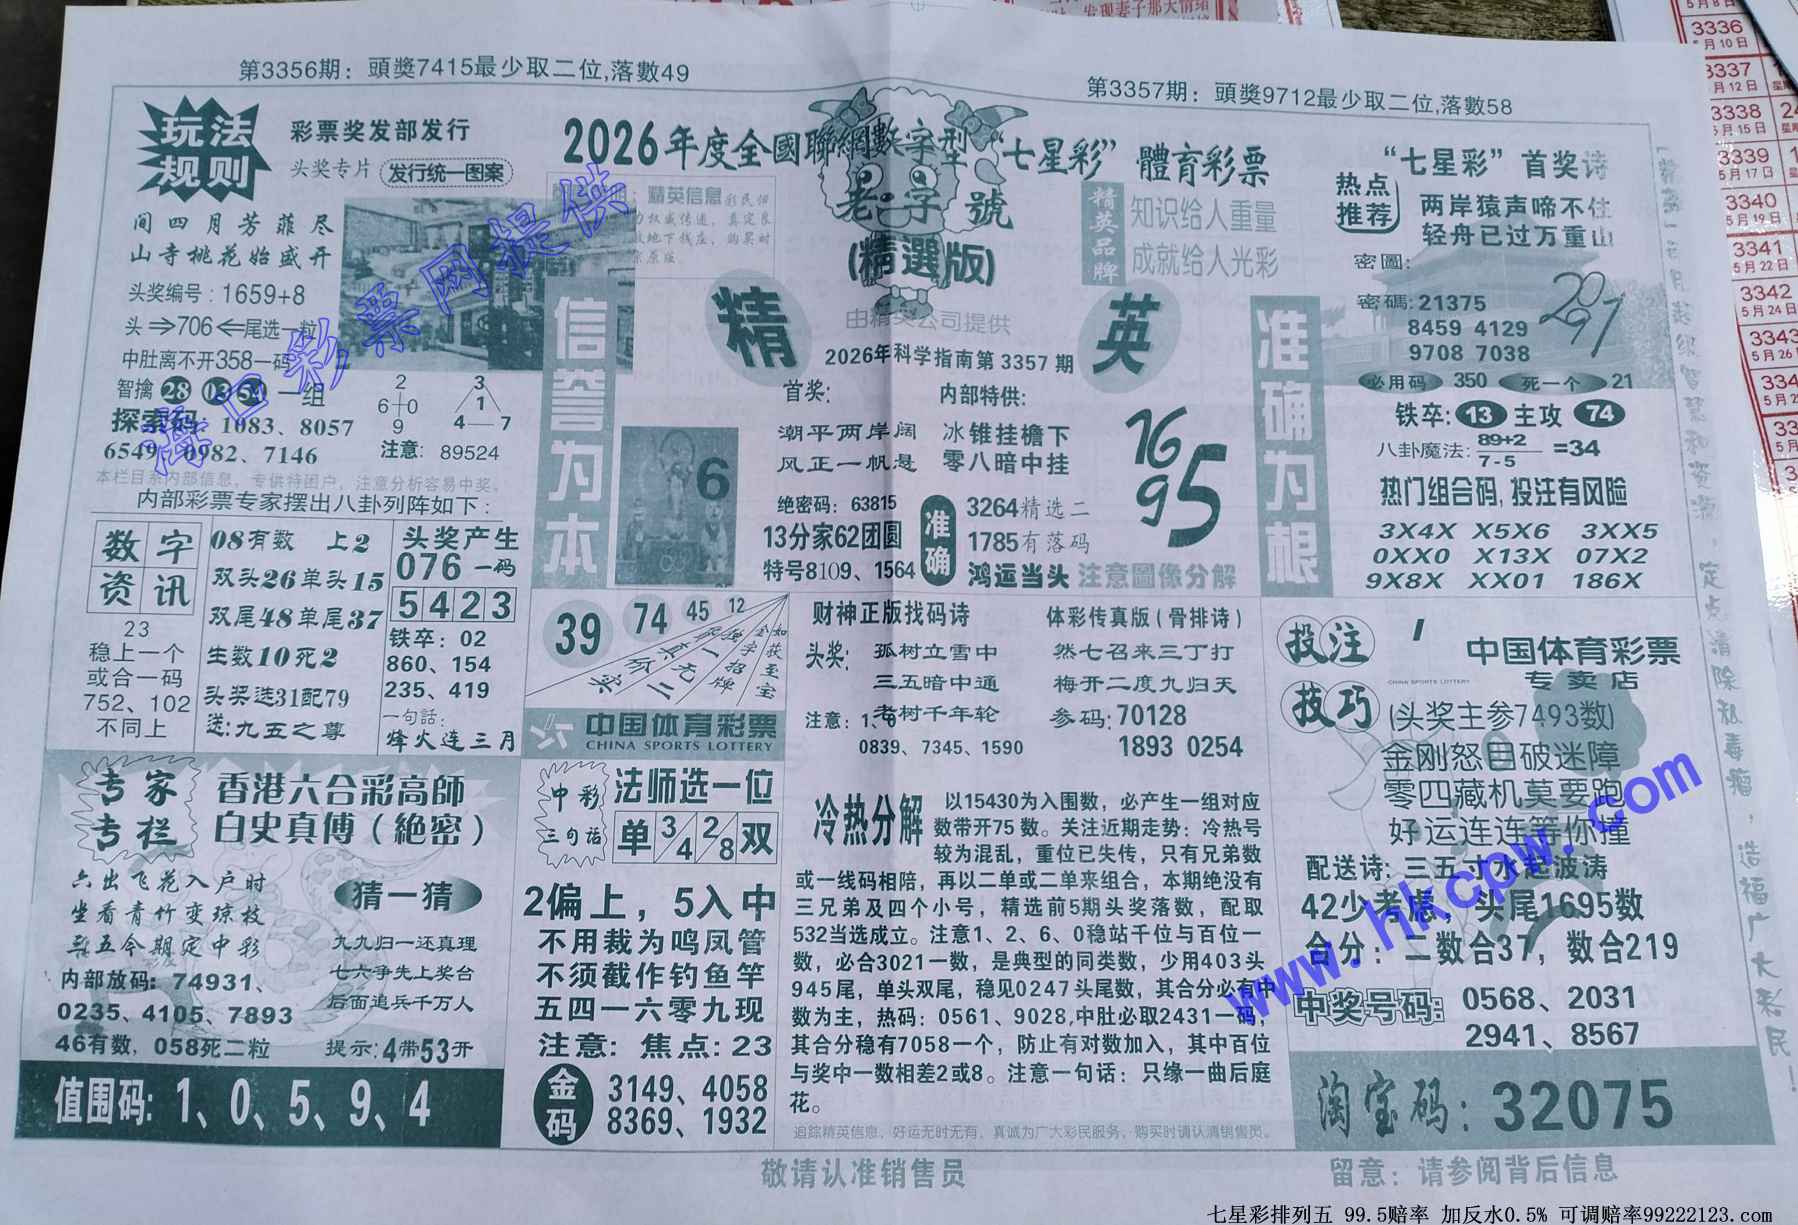 第3356期：頭獎7415最少取二位,落數49
第3357期：頭獎9712最少取二位,落數58
玩法
规则
彩票奖发部发行
头奖专片 发行统一图案
间四月芳菲尽
山寺桃花始盛开
头奖编号：1659+8
头⇒706⇐尾选一粒
中肚离不开358一码
智擒 28 13 54 一组
探索码：1083、8057
6549、0982、7146
2
6 0
9
3
1
4 7
注意：89524
本栏目系内部信息，专供待困户，注意分析容易中奖。
内部彩票专家摆出八卦列阵如下：
2026年度全國聯網數字型“七星彩”體育彩票
老字號
(精選版)
精英信息
精英品牌
知识给人重量
成就给人光彩
由精英公司提供
精 英
2026年科学指南第3357期
信誉为本
准确为根
首奖：
潮平两岸阔
风正一帆悬
绝密码：63815
13分家62团圆
特号8109、1564
内部特供：
冰锥挂檐下
零八暗中挂
准确
3264精选二
1785有落码
鸿运当头 注意圖像分解
6
16
95
“七星彩”首奖诗
热点
推荐
两岸猿声啼不住
轻舟已过万重山
密圖：
密碼：21375
8459 4129
9708 7038
必用码 350 死一个 21
铁卒：13 主攻 74
八卦魔法：89+2
7-5
=34
热门组合码,投注有风险
3X4X X5X6 3XX5
0XX0 X13X 07X2
9X8X XX01 186X
数字
资讯
23
稳上一个
或合一码
752、102
不同上
08有数 上2
双头26单头15
双尾48单尾37
生数10死2
头奖选31配79
送:九五之尊
头奖产生
076一码
5423
铁卒：02
860、154
235、419
一句話：
烽火连三月
39 74 45 12
中国体育彩票
CHINA SPORTS LOTTERY
财神正版找码诗
头奖：孤树立雪中
三五暗中通
老树千年轮
注意：1、6
0839、7345、1590
体彩传真版（骨排诗）
然七召来三丁打
梅开二度九归天
参码：70128
1893 0254
投注
技巧
中国体育彩票
CHINA SPORTS LOTTERY
专卖店
(头奖主参7493数)
金刚怒目破迷障
零四藏机莫要跑
好运连连等你撞
配送诗：三五寸水起波涛
42少考虑，头尾1695数
合分：二数合37，数合219
中奖号码：0568、2031
2941、8567
淘宝码：32075
专家
专栏
香港六合彩高師
白史真傅（絕密）
六出飞花入户时
坐看青竹变琼枝
吴五今期定中彩
猜一猜
九九归一还真理
七六争先上奖台
后面追兵千万人
内部放码：74931、
0235、4105、7893
46有数，058死二粒
提示：4带53开
值围码：1、0、5、9、4
中彩
三句话
法师选一位
单 3/4 2/8 双
2偏上，5入中
不用裁为鸣凤管
不须截作钓鱼竿
五四一六零九现
注意：焦点：23
金码
3149、4058
8369、1932
冷热分解
以15430为入围数，必产生一组对应
数带开75数。关注近期走势：冷热号
较为混乱，重位已失传，只有兄弟数
或一线码相陪，再以二单或二单来组合，本期绝没有
三兄弟及四个小号，精选前5期头奖落数，配取
532当选成立。注意1、2、6、0稳站千位与百位一
数，必合3021一数，是典型的同类数，少用403头
945尾，单头双尾，稳见0247头尾数，其合分必有中
数为主，热码：0561、9028,中肚必取2431一码，
其合分稳有7058一个，防止有对数加入，其中百位
与奖中一数相差2或8。注意一句话：只缘一曲后庭
花。
追踪精英信息，好运无时无有，真诚为广大彩民服务，购买时请认清销售员。
敬请认准销售员
留意：请参阅背后信息
海口彩票网提供
www.hkcpw.com
七星彩排列五 99.5赔率 加反水0.5% 可调赔率99222123.com
3336
3337
3338
3339
5月17日
3340
5月19日
3341
5月22日
3342
5月24日
3343
5月26